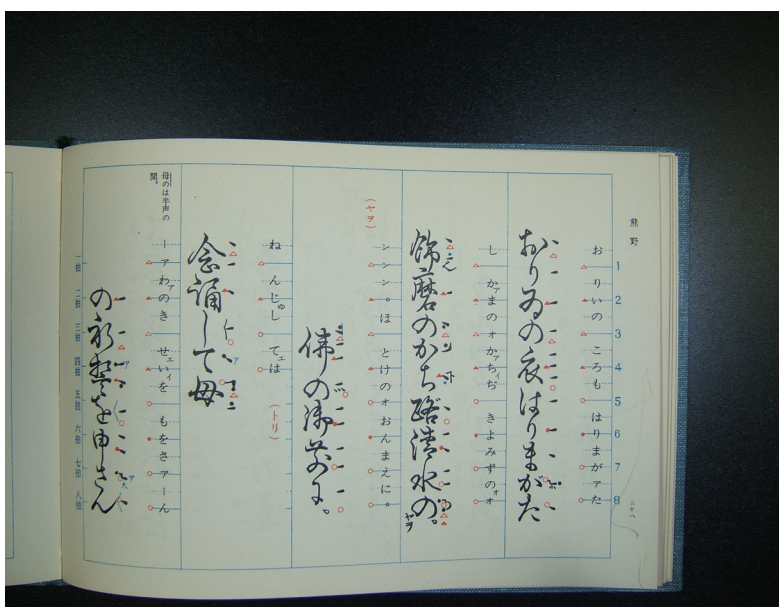 熊野
二十八
1 2 3 4 5 6 7 8
お りいの ころも はりまがァた
おりゐの衣はりまがた
し かァまのォ かァちぢィ きよみずのォオ
飾磨のかち路清水の。
ヤヲ
(ヤヲ)
シシシ。ほ とけのォ おんまえに。
佛の御前に。
ね んじゅし てェは
(トリ)
念誦して母
ーァわァのき せェいィを もをさァーん
の祈誓を申さん
母のは半声の
間。
一拍 二拍 三拍 四拍 五拍 六拍 七拍 八拍